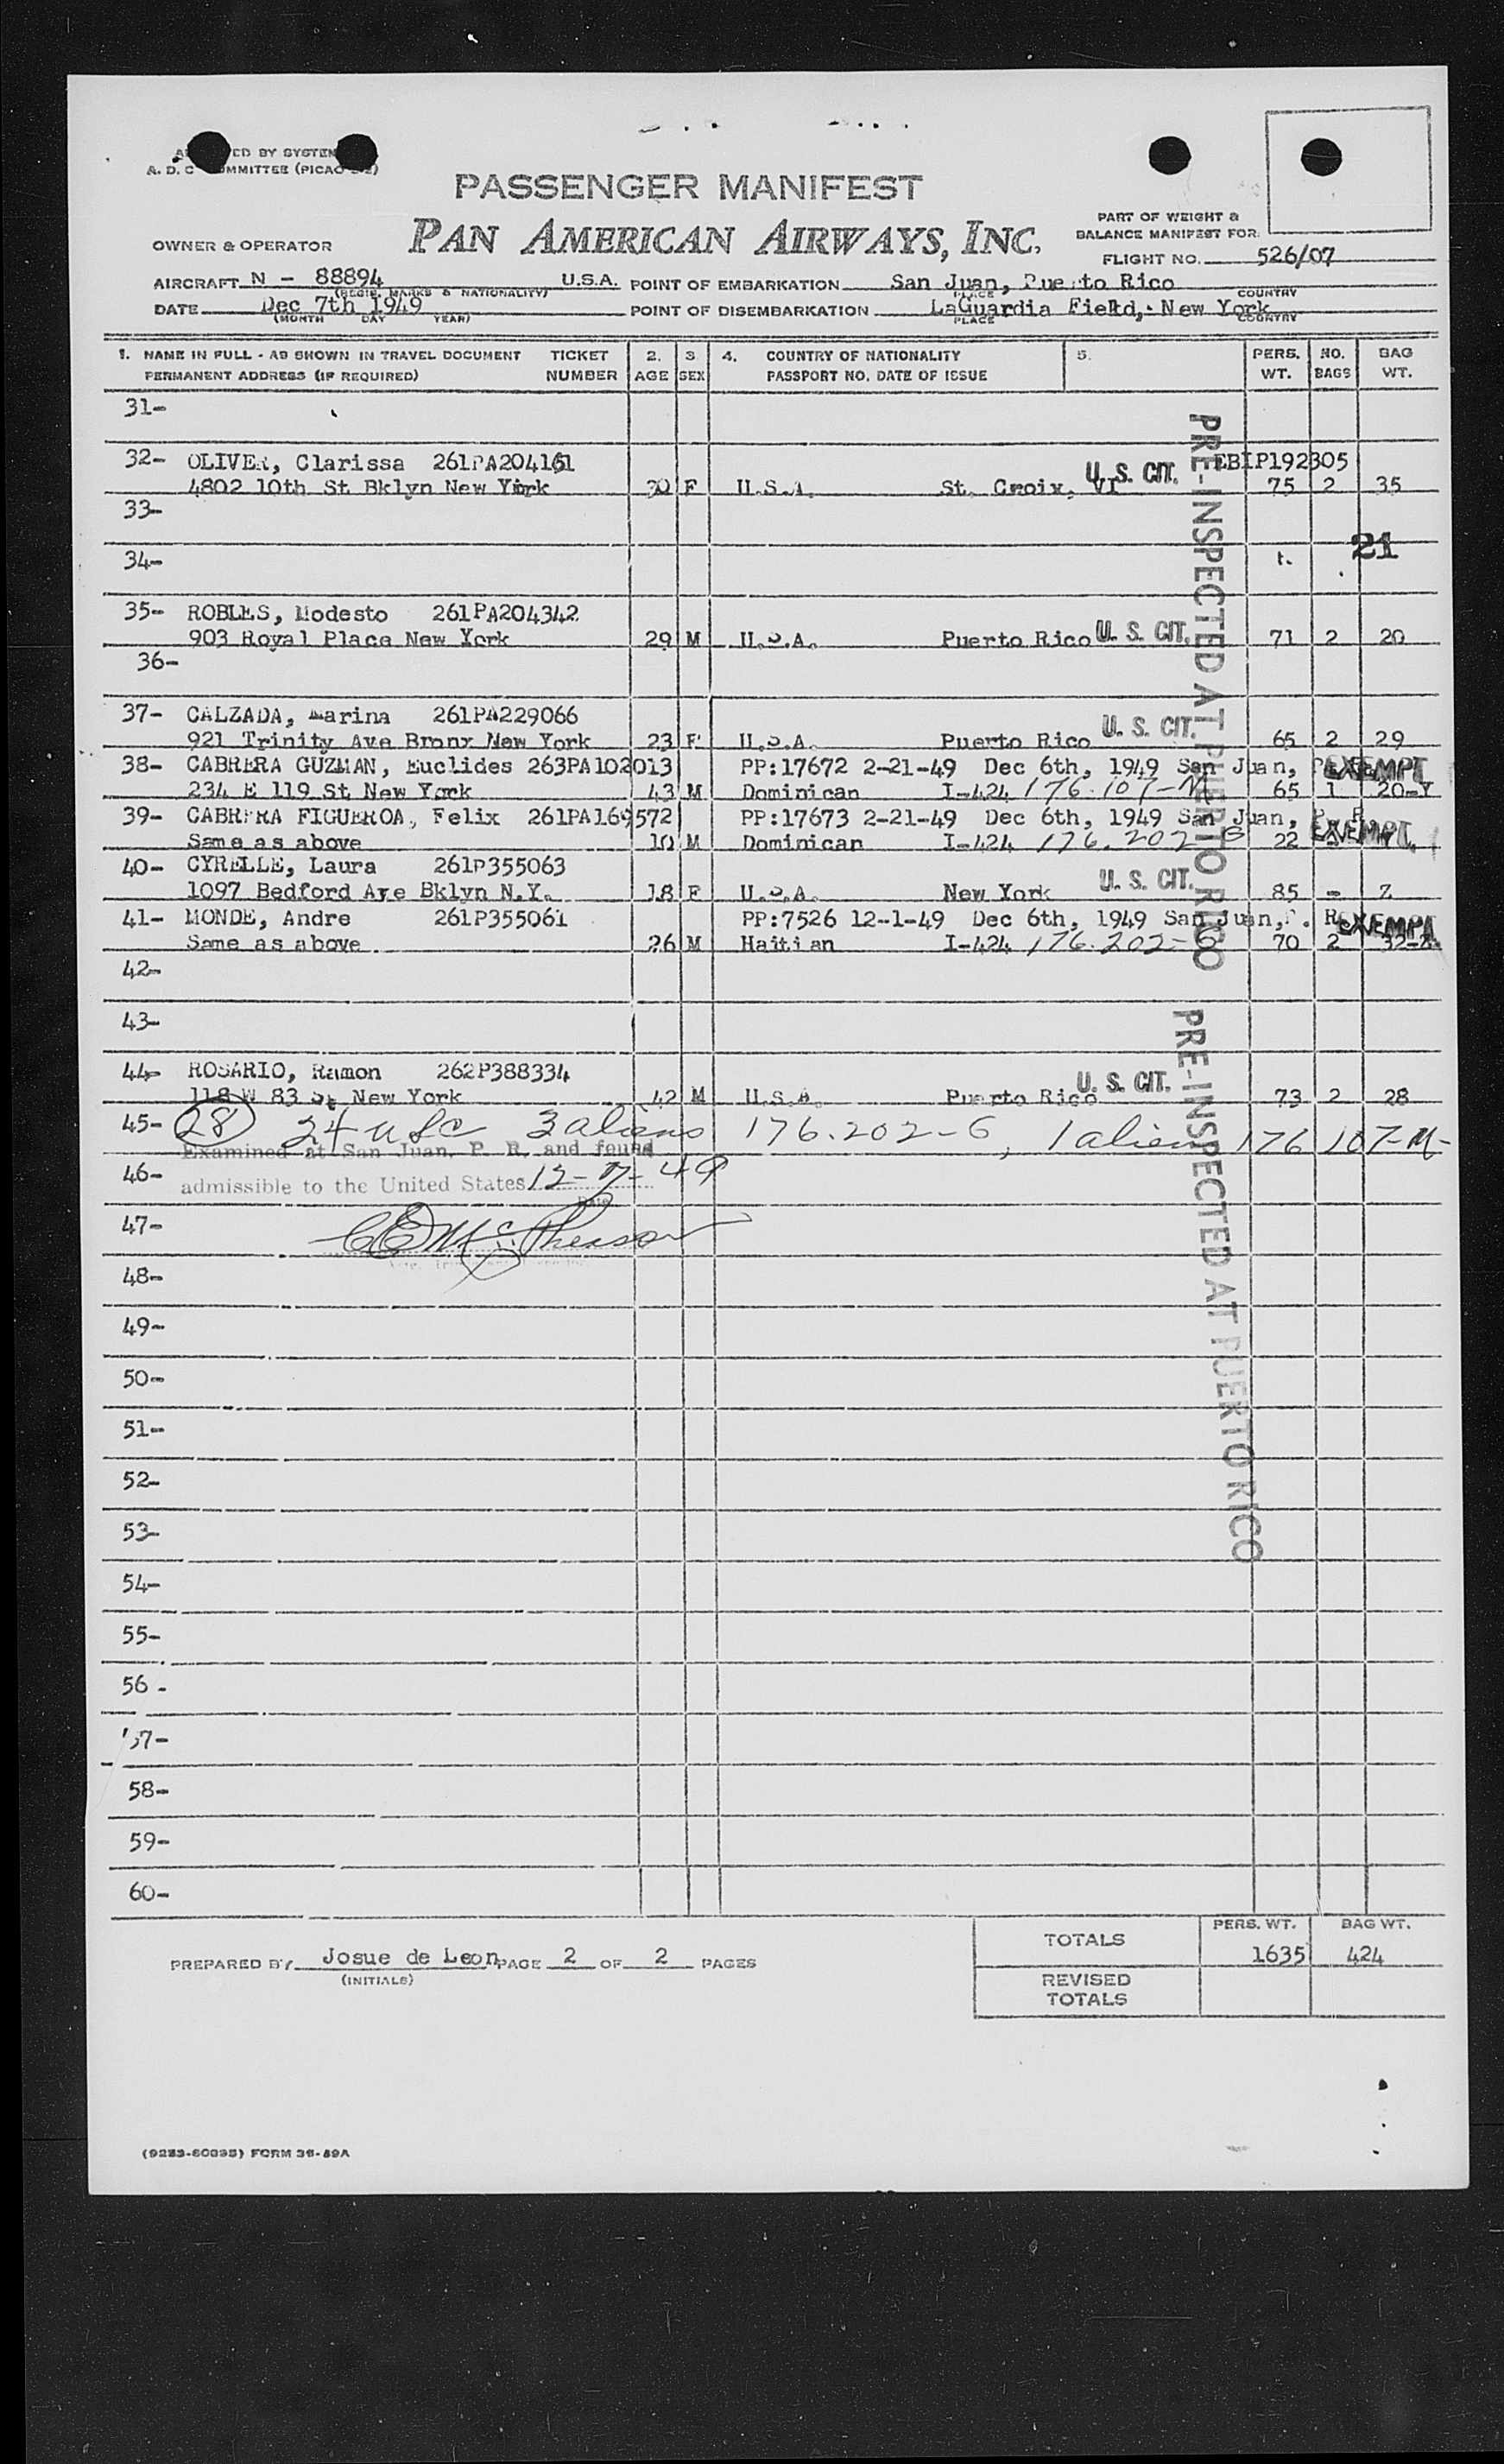 PASSENGER MANIFEST
PAN AMERICAN AIRWAYS, INC.
PART OF WEIGHT &
BALANCE MANIFEST FOR
FLIGHT NO. 526/07
OWNER & OPERATOR
AIRCRAFT N - 88894 U.S.A. POINT OF EMBARKATION San Juan, Puerto Rico
(REGIS. MARKS & NATIONALITY) PLACE COUNTRY
DATE Dec 7th 1949 POINT OF DISEMBARKATION LaGuardia Field, New York
(MONTH DAY YEAR) PLACE COUNTRY
1. NAME IN FULL - AS SHOWN IN TRAVEL DOCUMENT TICKET 2. 3 4. COUNTRY OF NATIONALITY 5. PERS. NO. BAG
PERMANENT ADDRESS (IF REQUIRED) NUMBER AGE SEX PASSPORT NO. DATE OF ISSUE WT. BAGS WT.
31-
32- OLIVER, Clarissa U.S. CIT. EBIP192305
4802 10th St Bklyn New York 30 F U.S.A. St. Croix, VI 75 2 35
33-
21
34-
35- ROBLES, Modesto 261PA204342
903 Royal Place New York 29 M U.S.A. Puerto Rico U. S. CIT. 71 2 20
36-
37- CALZADA, Marina 261PA229066 U. S. CIT.
921 Trinity Ave Bronx New York 23 F U.S.A. Puerto Rico 65 2 29
38- CABRERA GUZMAN, Euclides 263PA102013 PP:17672 2-21-49 Dec 6th, 1949 San Juan, EXEMPT
234 E 119 St New York 43 M Dominican I-424 176.107-M 65 1 20-Y
39- CABRERA FIGUEROA, Felix 261PA169572 PP:17673 2-21-49 Dec 6th, 1949 San Juan, P. R. EXEMPT
Same as above 10 M Dominican I-424 176.202-G 22
40- CYRELLE, Laura 261P355063 U. S. CIT.
1097 Bedford Ave Bklyn N.Y. 18 F U.S.A. New York 85 - Z
41- MONDE, Andre 261P355061 PP:7526 12-1-49 Dec 6th, 1949 San Juan, P. R. EXEMPT
Same as above 26 M Haitian I-424 176.202-G 70 2 32-Z
42-
43-
44- ROSARIO, Ramon 262P388334 U. S. CIT.
118 W 83 St New York 42 M U.S.A. Puerto Rico 73 2 28
45- (28) 24 USC 3 aliens 176.202-G, 1 alien 176 107-M-
Examined at San Juan, P. R. and found
46- admissible to the United States 12-7-49
Date
47- CE McPherson
48-
49-
50-
51-
52-
53-
54-
55-
56-
57-
58-
59-
60-
PRE-INSPECTED AT PUERTO RICO
PRE-INSPECTED AT PUERTO RICO
PERS. WT. BAG WT.
TOTALS 1635 424
PREPARED BY Josue de Leon PAGE 2 OF 2 PAGES
(INITIALS)
REVISED
TOTALS